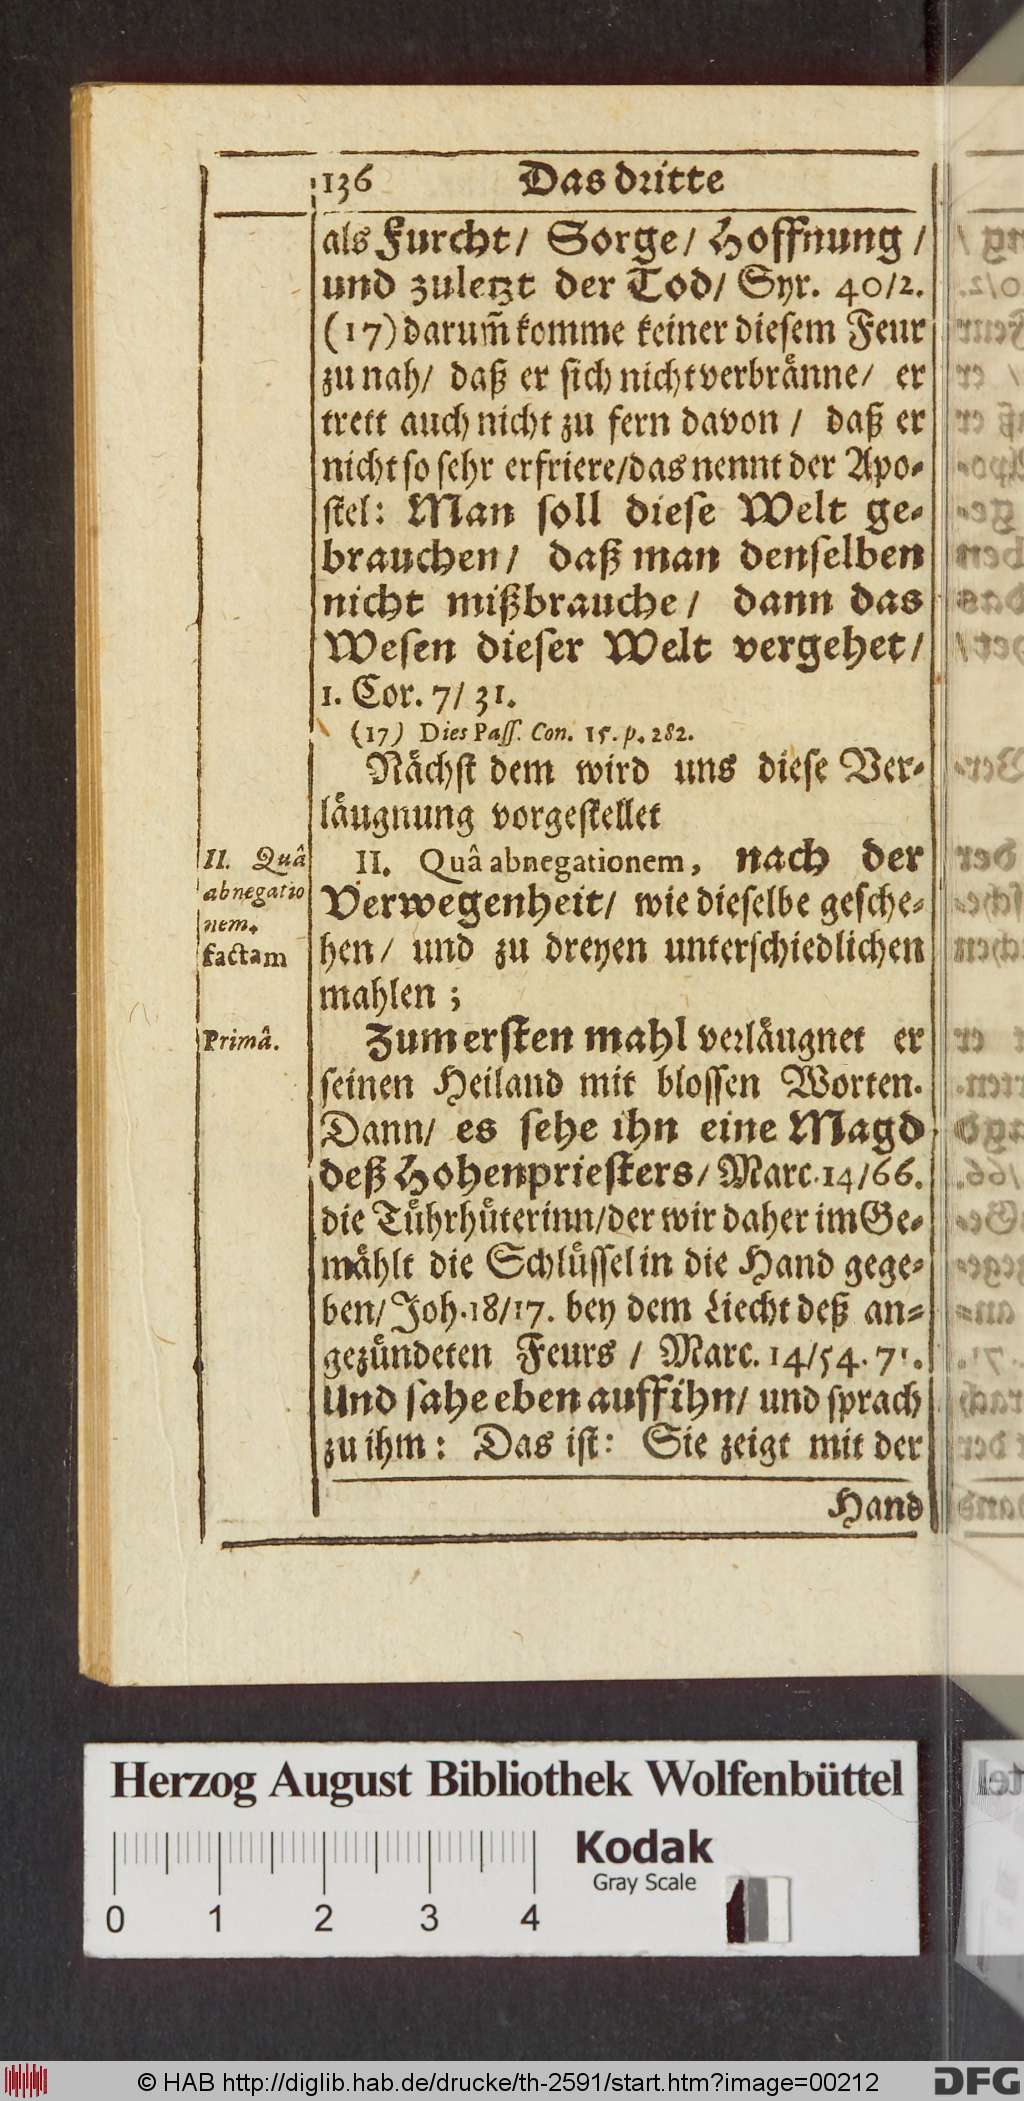 136 Das dritte
als Furcht/ Sorge/ Hoffnung/
und zuletzt der Tod/ Syr. 40/2.
(17) darum̃ komme keiner diesem Feur
zu nah/ daß er sich nicht verbränne/ er
trett auch nicht zu fern davon/ daß er
nicht so sehr erfriere/das nennt der Apo-
stel: Man soll diese Welt ge-
brauchen/ daß man denselben
nicht mißbrauche/ dann das
Wesen dieser Welt vergehet/
1. Cor. 7/ 31.
(17) Dies Pass. Con. 15. p. 282.
Nächst dem wird uns diese Ver-
läugnung vorgestellet
II. Quâ
abnegatio
nem.
factam
II. Quâ abnegationem, nach der
Verwegenheit/ wie dieselbe gesche-
hen/ und zu dreyen unterschiedlichen
mahlen;
Primâ.
Zum ersten mahl verläugnet er
seinen Heiland mit blossen Worten.
Dann/ es sehe ihn eine Magd
deß Hohenpriesters/ Marc. 14/66.
die Tührhüterinn/der wir daher im Ge-
mählt die Schlüssel in die Hand gege-
ben/ Joh. 18/17. bey dem Liecht deß an-
gezündeten Feurs/ Marc. 14/54. 71.
Und sahe eben auff ihn/ und sprach
zu ihm: Das ist: Sie zeigt mit der
Hand
Herzog August Bibliothek Wolfenbüttel
Kodak
Gray Scale
0 1 2 3 4
© HAB http://diglib.hab.de/drucke/th-2591/start.htm?image=00212
DFG